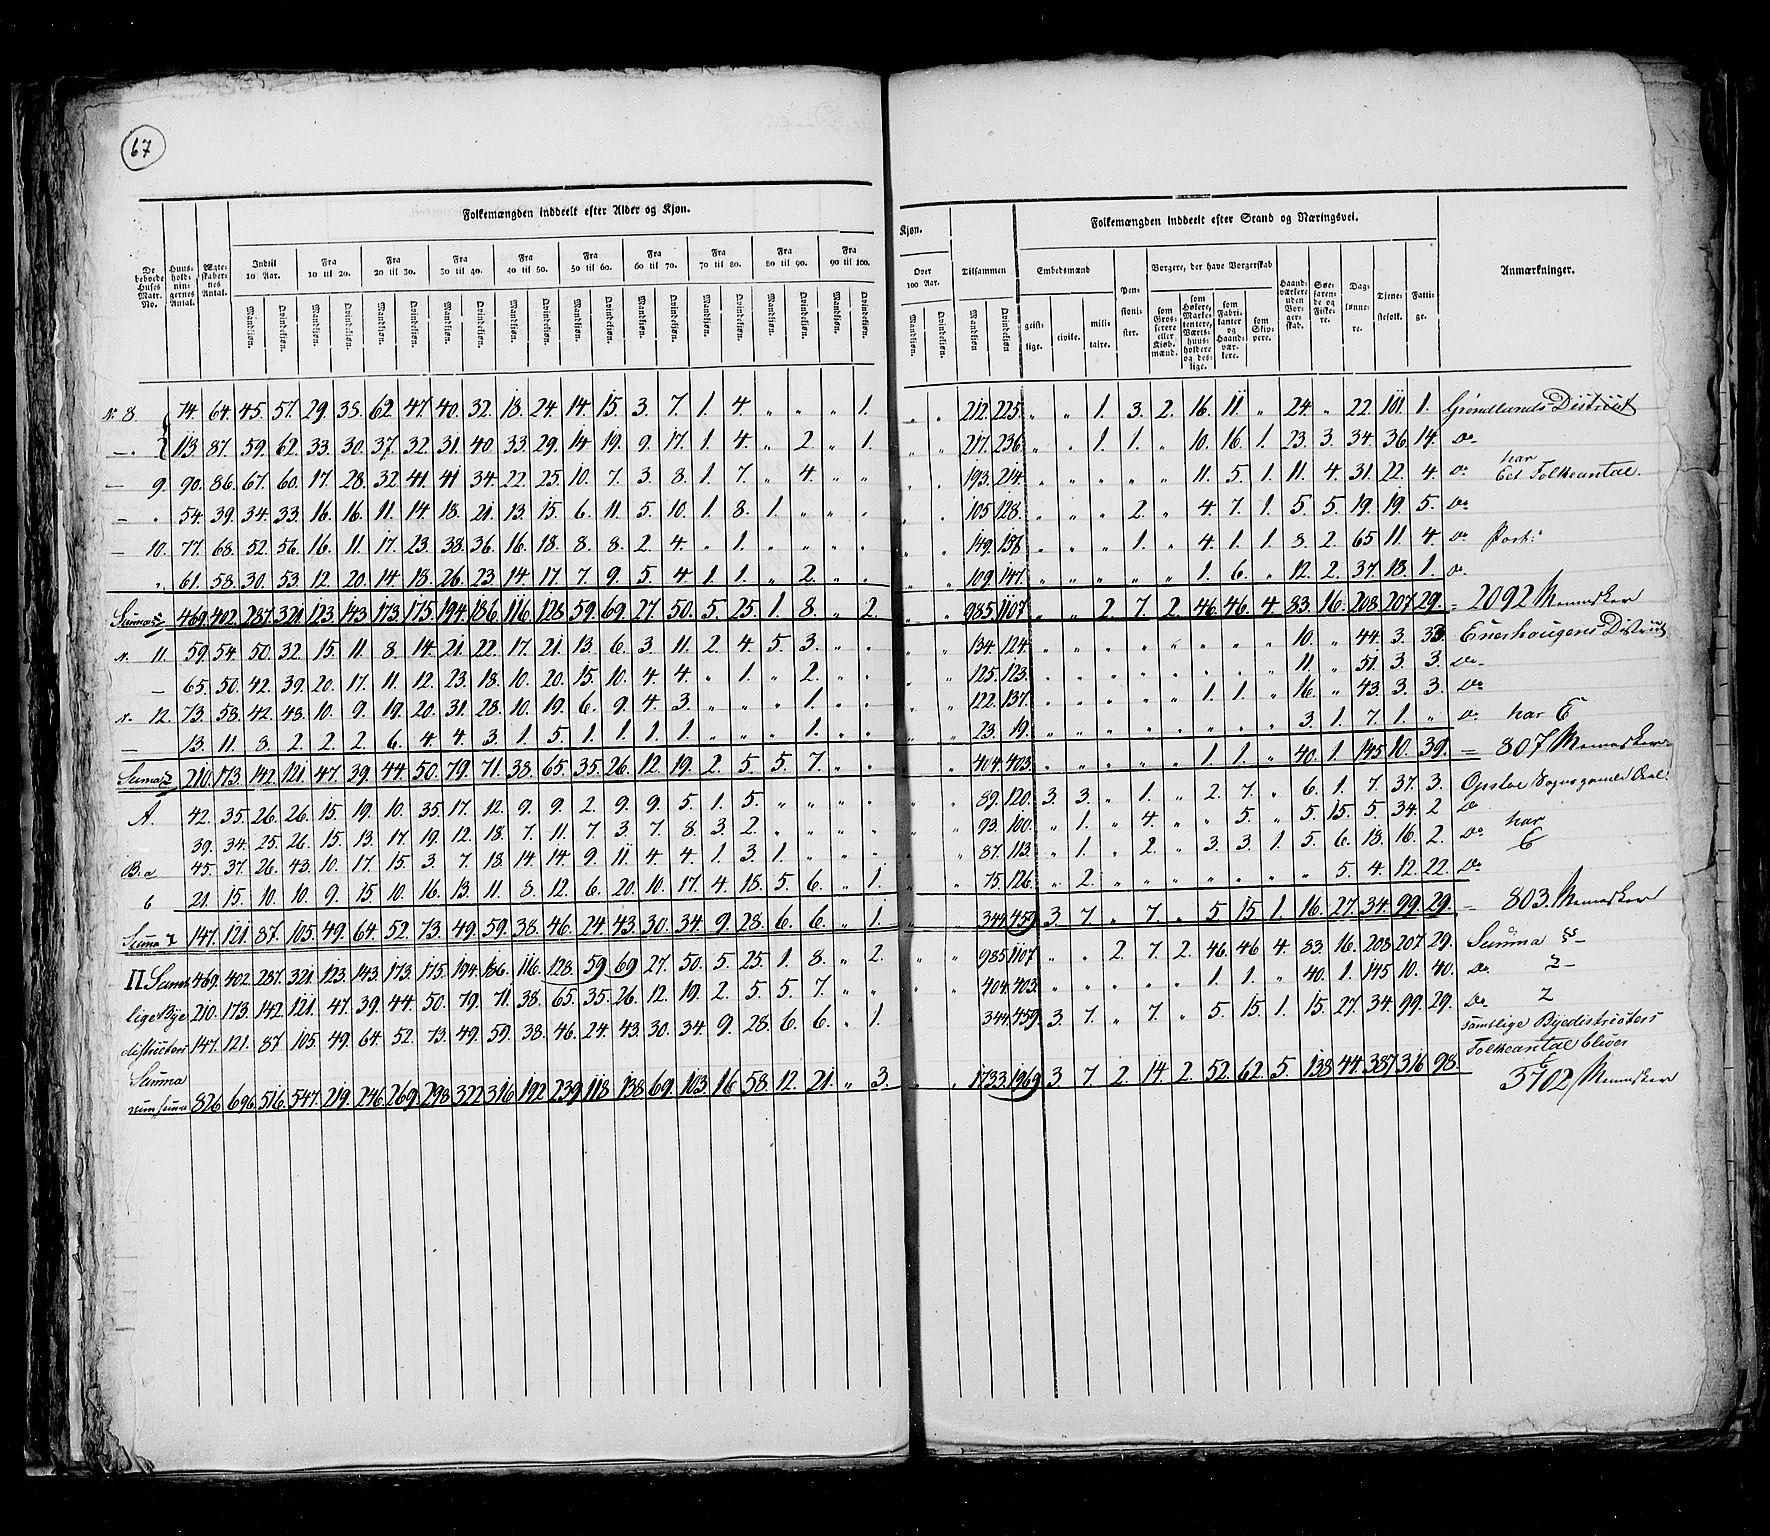 67
Folkemængden inddeelt efter Alder og Kjøn.
De beboede Huses Matr. No. | Huus-hold-nin-gernes Antal. | Ægte-skaber-nes Antal. | Indtil 10 Aar. | Fra 10 til 20. | Fra 20 til 30. | Fra 30 til 40. | Fra 40 til 50. | Fra 50 til 60. | Fra 60 til 70. | Fra 70 til 80. | Fra 80 til 90. | Fra 90 til 100.
Mandkjøn. Qvindekjøn. Mandkjøn. Qvindekjøn. Mandkjøn. Qvindekjøn. Mandkjøn. Qvindekjøn. Mandkjøn. Qvindekjøn. Mandkjøn. Qvindekjøn. Mandkjøn. Qvindekjøn. Mandkjøn. Qvindekjøn. Mandkjøn. Qvindekjøn. Mandkjøn. Qvindekjøn.
N. 8. 74. 64. 45. 57. 29. 38. 62. 47. 40. 32. 18. 24. 14. 15. 3. 7. 1. 4. " " " 1.
— " 113. 87. 59. 62. 33. 30. 37. 32. 31. 40. 33. 29. 14 19. 9. 17. 1. 4. " 2. " 1.
— 9. 90. 86. 67. 60. 17. 28. 32. 41. 41 34. 22. 25. 10. 7. 3. 8. 1. 7. " 4. " "
— " 54. 39. 34. 33. 16. 16. 11. 14. 18. 21. 13. 15. 6. 11. 5. 10. 1. 8. 1. " " "
— 10. 77. 68. 52. 56. 16. 11. 17. 23. 38. 36. 16. 18. 8. 8. 2. 4. " 1. " " " "
" 61. 58. 30. 53. 12. 20. 14. 18. 26. 23. 14. 17. 7. 9. 5. 4. 1. 1. " 2. " "
Summa 469. 402. 287. 321. 123. 143. 173. 175. 194. 186. 116. 128. 59. 69. 27. 50. 5. 25. 1. 8. " 2.
N. 11. 59. 54. 50. 32. 15. 11. 8. 14. 21. 22. 17. 21. 13. 6. 3. 11. 2. 4. 5. 3. " "
— 65. 50. 42. 39. 20. 17. 11. 12. 23. 18. 10. 20. 15. 10. 4. 4. " 1. " 2. " "
N. 12. 73. 58. 42. 48. 10. 9. 19. 20. 31. 28. 10. 19. 6. 9. 4. 3. " " " 1. " "
— 13. 11. 8. 2. 2. 2. 6. 4. 4. 3. 1. 5. 1. 1. 1. 1. " " " 1. " "
Summa 210. 173. 142. 121. 47. 39. 44. 50. 79. 71. 38. 65. 35. 26. 12. 19. 2. 5. 5. 7. " "
A. 42. 35. 26. 26. 15. 19. 10. 35. 17. 12. 9. 9. 2. 9. 9. 5. 1. 5. " " " "
39. 34. 25. 26. 15. 13. 17. 19. 12. 18. 7. 11. 7. 3. 7. 8. 3. 2. " " " "
B. a 45. 37. 26. 43. 10. 17. 15. 3. 7. 18. 14. 14. 9. 11. 4. 4. 1. 3. 1. " " "
6 21. 15. 10. 10. 9. 15. 10. 16. 13. 11. 8. 12. 6. 20. 10. 17. 4. 18. 5. 6. " 1.
Summa 147. 121. 87. 105. 49. 64. 52. 73. 49. 59. 38. 46. 24. 43. 30. 34. 9. 28. 6. 6. " 1.
469. 402. 287. 321. 123. 143. 173. 175. 194. 186. 116. 128. 59 69 27. 50. 5 25. 1. 8. " 2.
lige Bye 210. 173. 142. 121. 47. 39. 44. 50. 79. 71. 38. 65. 35. 26. 12. 19. 2. 5. 5. 7. " "
districters 147. 121. 87 105. 49. 64. 52. 73. 49. 59. 38. 46. 24. 43. 30. 34. 9. 28. 6. 6. " 1.
Summa
826 696. 516. 547. 219. 246. 269. 298. 322. 316. 192. 239. 118. 138. 69. 103. 16. 58. 12. 21. " 3.
Kjøn.
Over 100 Aar. | Tilsammen | Folkemængden inddeelt efter Stand og Næringsvei.
Mandkjøn. Qvindekjøn. Mandkjøn Qvindekjøn
Embedsmænd geist-lige. civile. mili-taire. | Pen-sioni-ster. | Borgere, der have Borgerskab som Gros-serere eller Kjøb-mænd. som Høkere, Marke-tentere, Værts-huus-holdere og des-lige. som Fabri-kanter og Haand-vær-kere. som Skip-pere. | Haand-værkere uden Bor-ger-skab. | Søe-faren-de og Fiske-re. | Dag-lønne-re. | Tjene-stefolk. | Fatti-ge. | Anmærkninger.
" " 212. 225. " " 1. 3. 2. 16. 11. " 24. " 22. 101. 1. Grønlands District
" " 217. 236. " " 1. 1. " 10. 16. 1. 23. 3. 34. 36. 14. Do
" " 193. 214. " " " " " 11. 5. 1. 11. 4. 31. 22. 4. Do har Eet Folkeantal.
" " 105. 128. " " " 2. " 4. 7. 1. 5. 5. 19. 19. 5. Do
" " 149. 158 " " " 1. " 4. 1. 1. 8. 2. 65. 11. 4. Do
" " 109. 147. " " " " " 1. 6. " 12. 2. 37. 18. 1. Do
" " 985. 1107. " " 2. 7. 2. 46. 46. 4. 83. 16. 208. 207. 29. = 2092 Mennesker
" " 134. 124. " " " " " " " " 10. " 44. 3. 33 Enerhougens District
" " 125. 123. " " " " " " " " 11. " 51. 3. 3. Do
" " 122. 137. " " " " " 1. 1. " 16. " 43. 3. 3. Do
" " 23. 19. " " " " " " " " 3. 1. 7. 1. " Do har E
" " 404. 403. " " " " " 1. 1. " 40. 1. 145. 10. 39. = 807 Mennesker
" " 89. 120. 3. 3. " 1. " 2. 7. " 6. 1. 7. 37. 3. Opsloe
" " 93. 100. " 1. " 4. " " 5. " 5. 15. 5. 34. 2 Do
" " 87. 113. " 1. " 2. " 3. 3. 1. 5. 6. 18. 16. 2. Do har E
" " 75. 126. " 2. " " " " " " " 5. 4. 12. 22. Do
" " 344. 459. 3. 7. " 7. " 5. 15. 1. 16. 27. 34. 99. 29. = 803. Mennesker
" " 985. 1107. " " 2. 7. 2. 46. 46. 4. 83. 16. 208. 207. 29. Summa
" " 404. 403. " " " " " 1. 1. " 40. 1. 145. 10. 40. Do
" " 344. 459. 3. 7. " 7. " 5. 15. 1. 15. 27. 34. 99. 29. Do
samtlige Byedistricters
Folkeantal bliver
" " 1733. 1969. 3. 7. 2. 14. 2. 52. 62. 5. 138. 44. 387. 316. 98. 3702 Mennesker